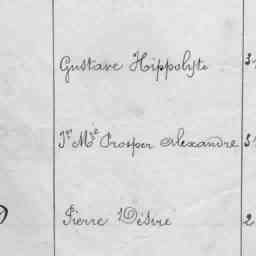 Gustave Hippolyte
Jn Mie Prosper Alexandre
Pierre Désiré
2